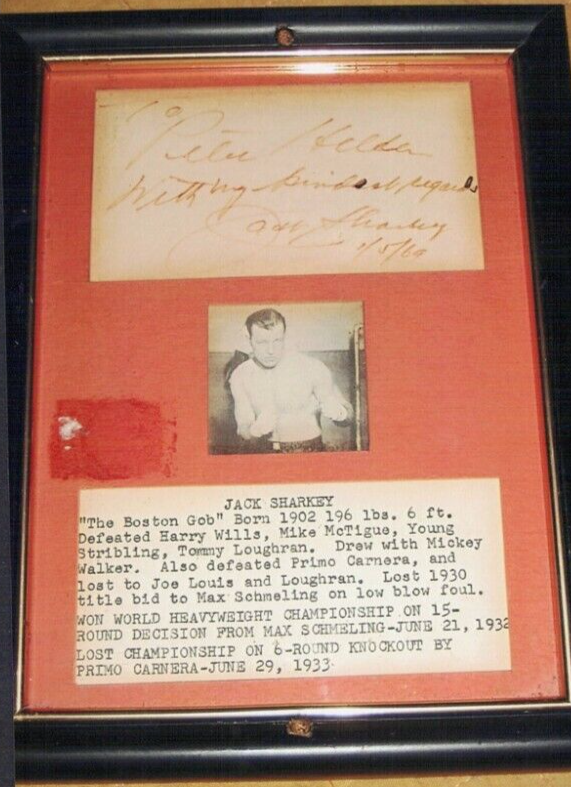 To
Peter Helder
With my kindest regards
Jack Sharkey
1/5/69
JACK SHARKEY
"The Boston Gob" Born 1902 196 lbs. 6 ft.
Defeated Harry Wills, Mike McTigue, Young
Stribling, Tommy Loughran. Drew with Mickey
Walker. Also defeated Primo Carnera, and
lost to Joe Louis and Loughran. Lost 1930
title bid to Max Schmeling on low blow foul.
WON WORLD HEAVYWEIGHT CHAMPIONSHIP ON 15-
ROUND DECISION FROM MAX SCHMELING-JUNE 21, 1932
LOST CHAMPIONSHIP ON 6-ROUND KNOCKOUT BY
PRIMO CARNERA-JUNE 29, 1933